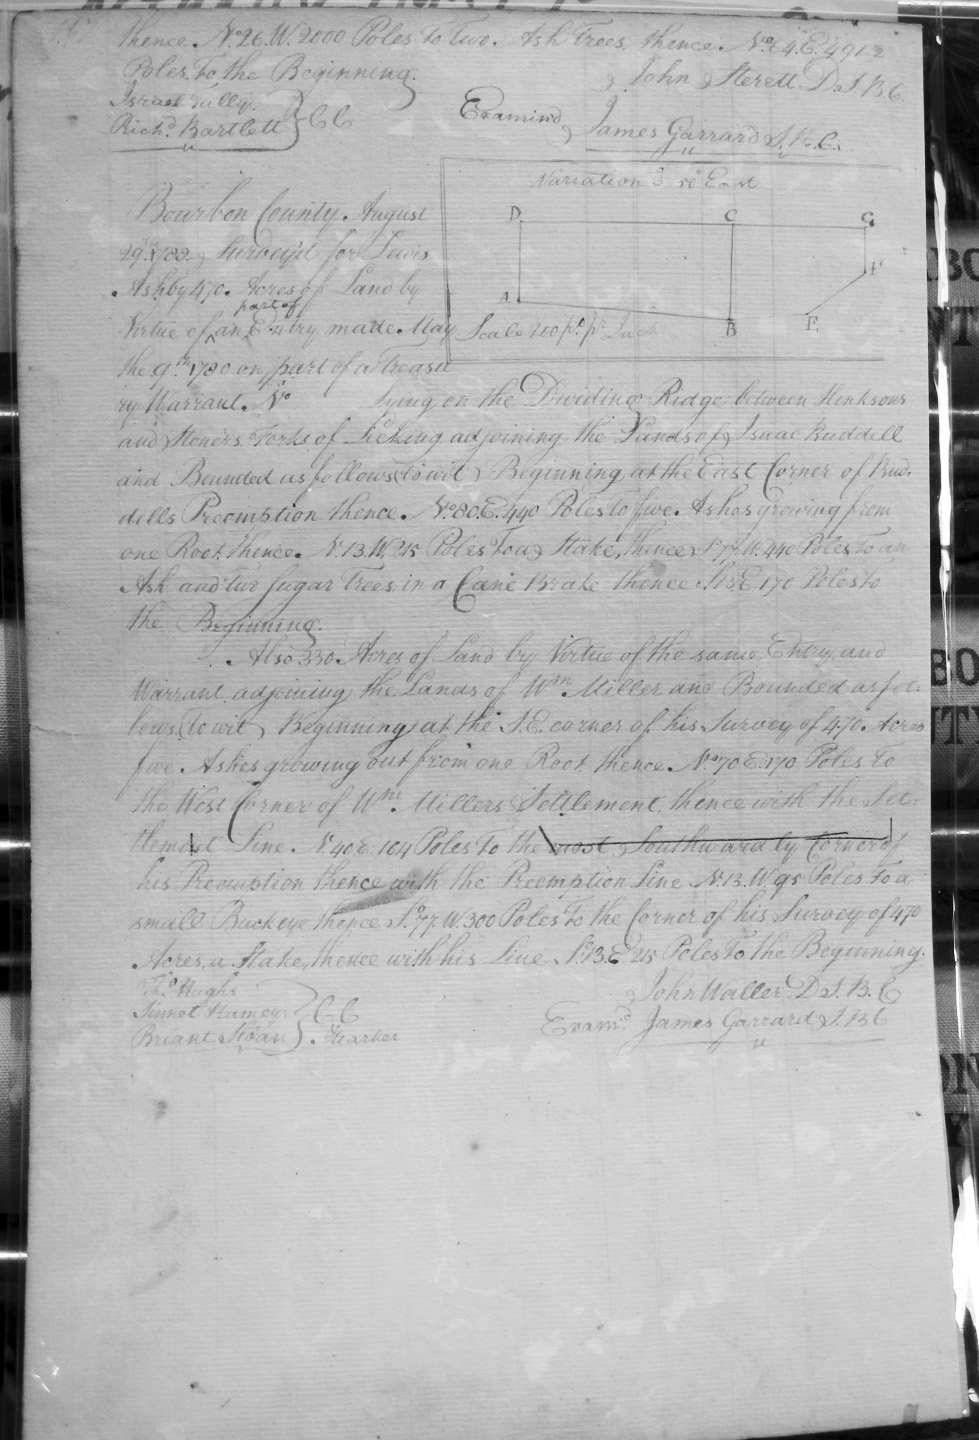 thence. No. 26. W. 2000 Poles to two. Ash Trees, thence. No. 64. E. 491 2
Poles. To the Beginning.
John Sterett. D.S.B.C.
Israel Tully.
Richd. Bartlett } CC
Examind, James Garrard S.B.C.
Variation 3° 50' East
D C G
F
A B E
Scale 200 po. pr. Inch
Bourbon County, August
29th. 1788, Survey'd for Lewis
Ashby 470. Acres of Land by
part of
Virtue of an Entry made. May
the 9th. 1780 on, part of a Treasu
ry Warrant. No lying on the Dividing Ridge between Hinksons
and Stoners Forks of Licking adjoining the Lands of, Isaac Ruddell
and Bounded as follows (to wit) Beginning at the East Corner of Rud:
dells Preemption thence. No. 80. E. 440 Poles to five. Ashes growing from
one Root, thence. N. 13. W. 215 Poles to a, Stake, thence, So. 77. W. 440 Poles to an
Ash and two Sugar Trees in a Cane Brake thence S. 13. E. 170 Poles to
the Beginning.
Also 330. Acres of Land by Virtue of the same, Entry, and
Warrant, adjoining, the Lands of Wm. Miller and Bounded as fol:
lows (to wit) Beginning at the S. E. corner of his Survey of 470. Acres
five. Ashes growing out from one Root, thence. No. 70 E. 170 Poles To
the West Corner of Wm. Millers Settlement, thence with the Set:
tlement Line. N. 40 E. 164 Poles to the most Southwardly Corner of
his Preemption thence with the Preemption Line N. 13. W. 95 Poles to a
small Buckeye, thence So. 77. W. 300 Poles to the Corner of his Survey of 470
Acres, a Stake, thence with his Line So. 13. E 215 Poles To the Beginning.
John Waller. D.S.B.C
Thos. Hughs
Sinnet Rameys } CC
Briant Sloan } Marker
Examd. James Garrard S.BC